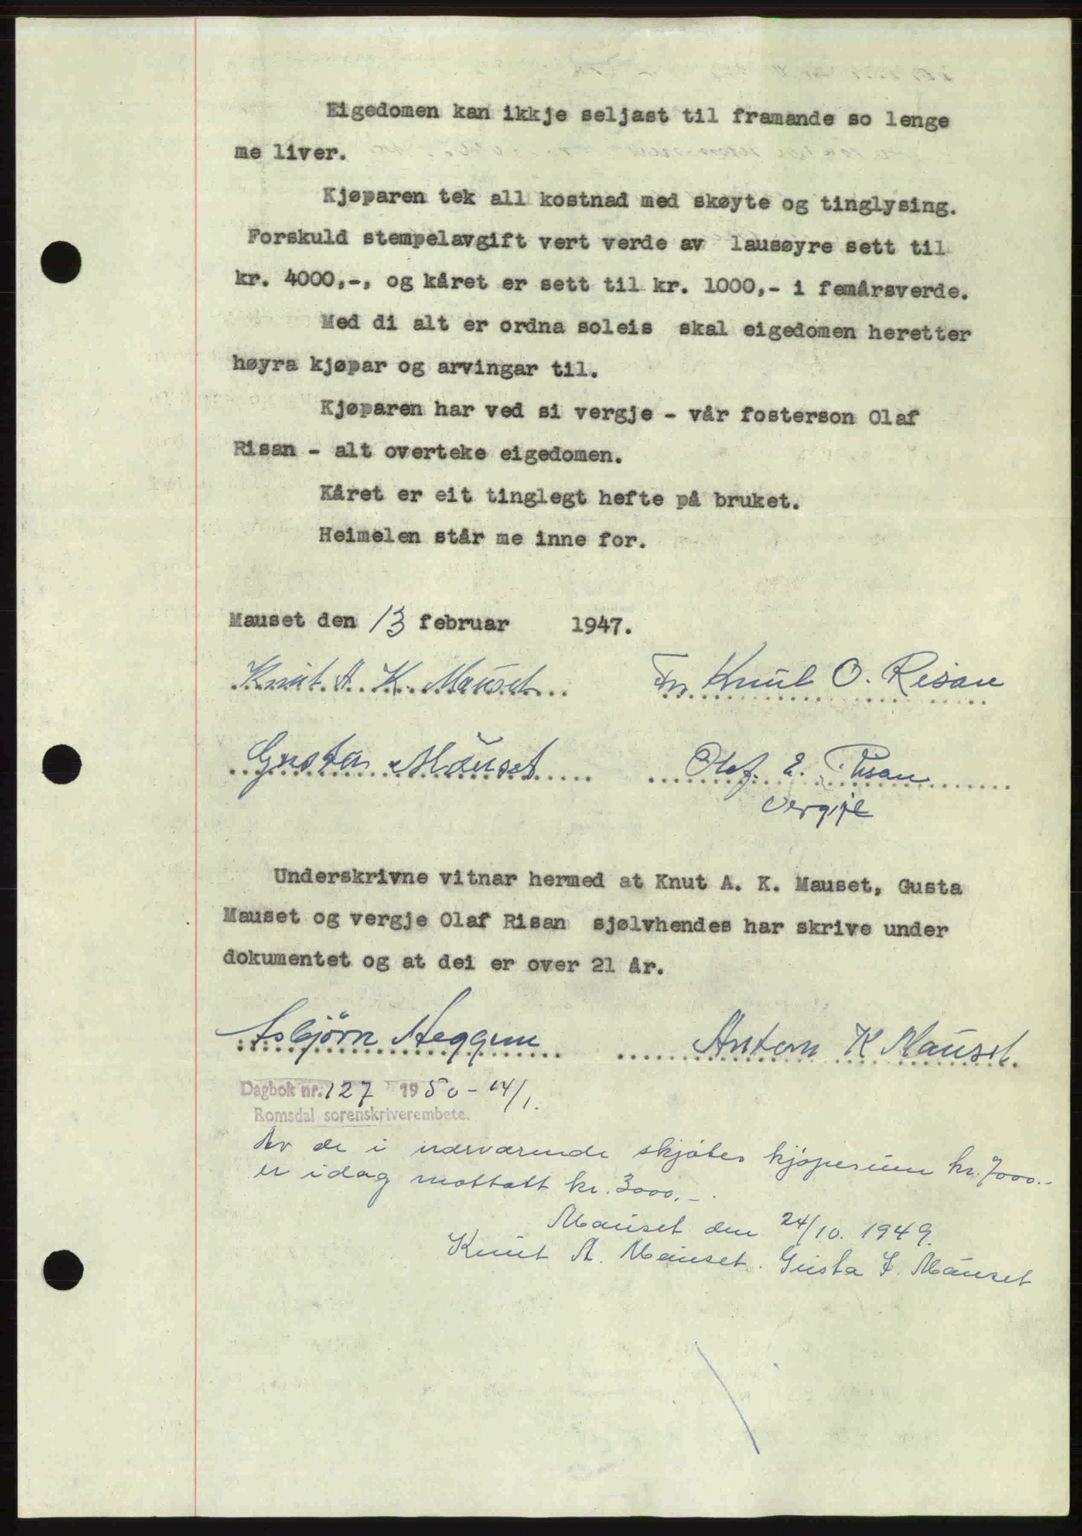 Eigedomen kan ikkje seljast til framande so lenge
me liver.
Kjøparen tek all kostnad med skøyte og tinglysing.
Forskuld stempelavgift vert verde av lausøyre sett til
kr. 4000,-, og kåret er sett til kr. 1000,- i femårsverde.
Med di alt er ordna soleis skal eigedomen heretter
høyra kjøpar og arvingar til.
Kjøparen har ved si vergje - vår fosterson Olaf
Risan - alt overteke eigedomen.
Kåret er eit tinglegt hefte på bruket.
Heimelen står me inne for.
Mauset den 13 februar 1947.
Knut A. K. Mauset Fr Knut O. Risan
Gusta Mauset Olaf E. Risan
vergje
Underskrivne vitnar hermed at Knut A. K. Mauset, Gusta
Mauset og vergje Olaf Risan sjølvhendes har skrive under
dokumentet og at dei er over 21 år.
Asbjørn Heggem Antom K Mauset.
Dagbok nr. 127 1950 - 14/1.
Romsdal sorenskriverembete.
Av de i nærværende skjøtes kjøpesum kr. 7000.-
er idag mottatt kr. 3000.-
Mauset den 24/10. 1949.
Knut A. Mauset. Gusta F. Mauset